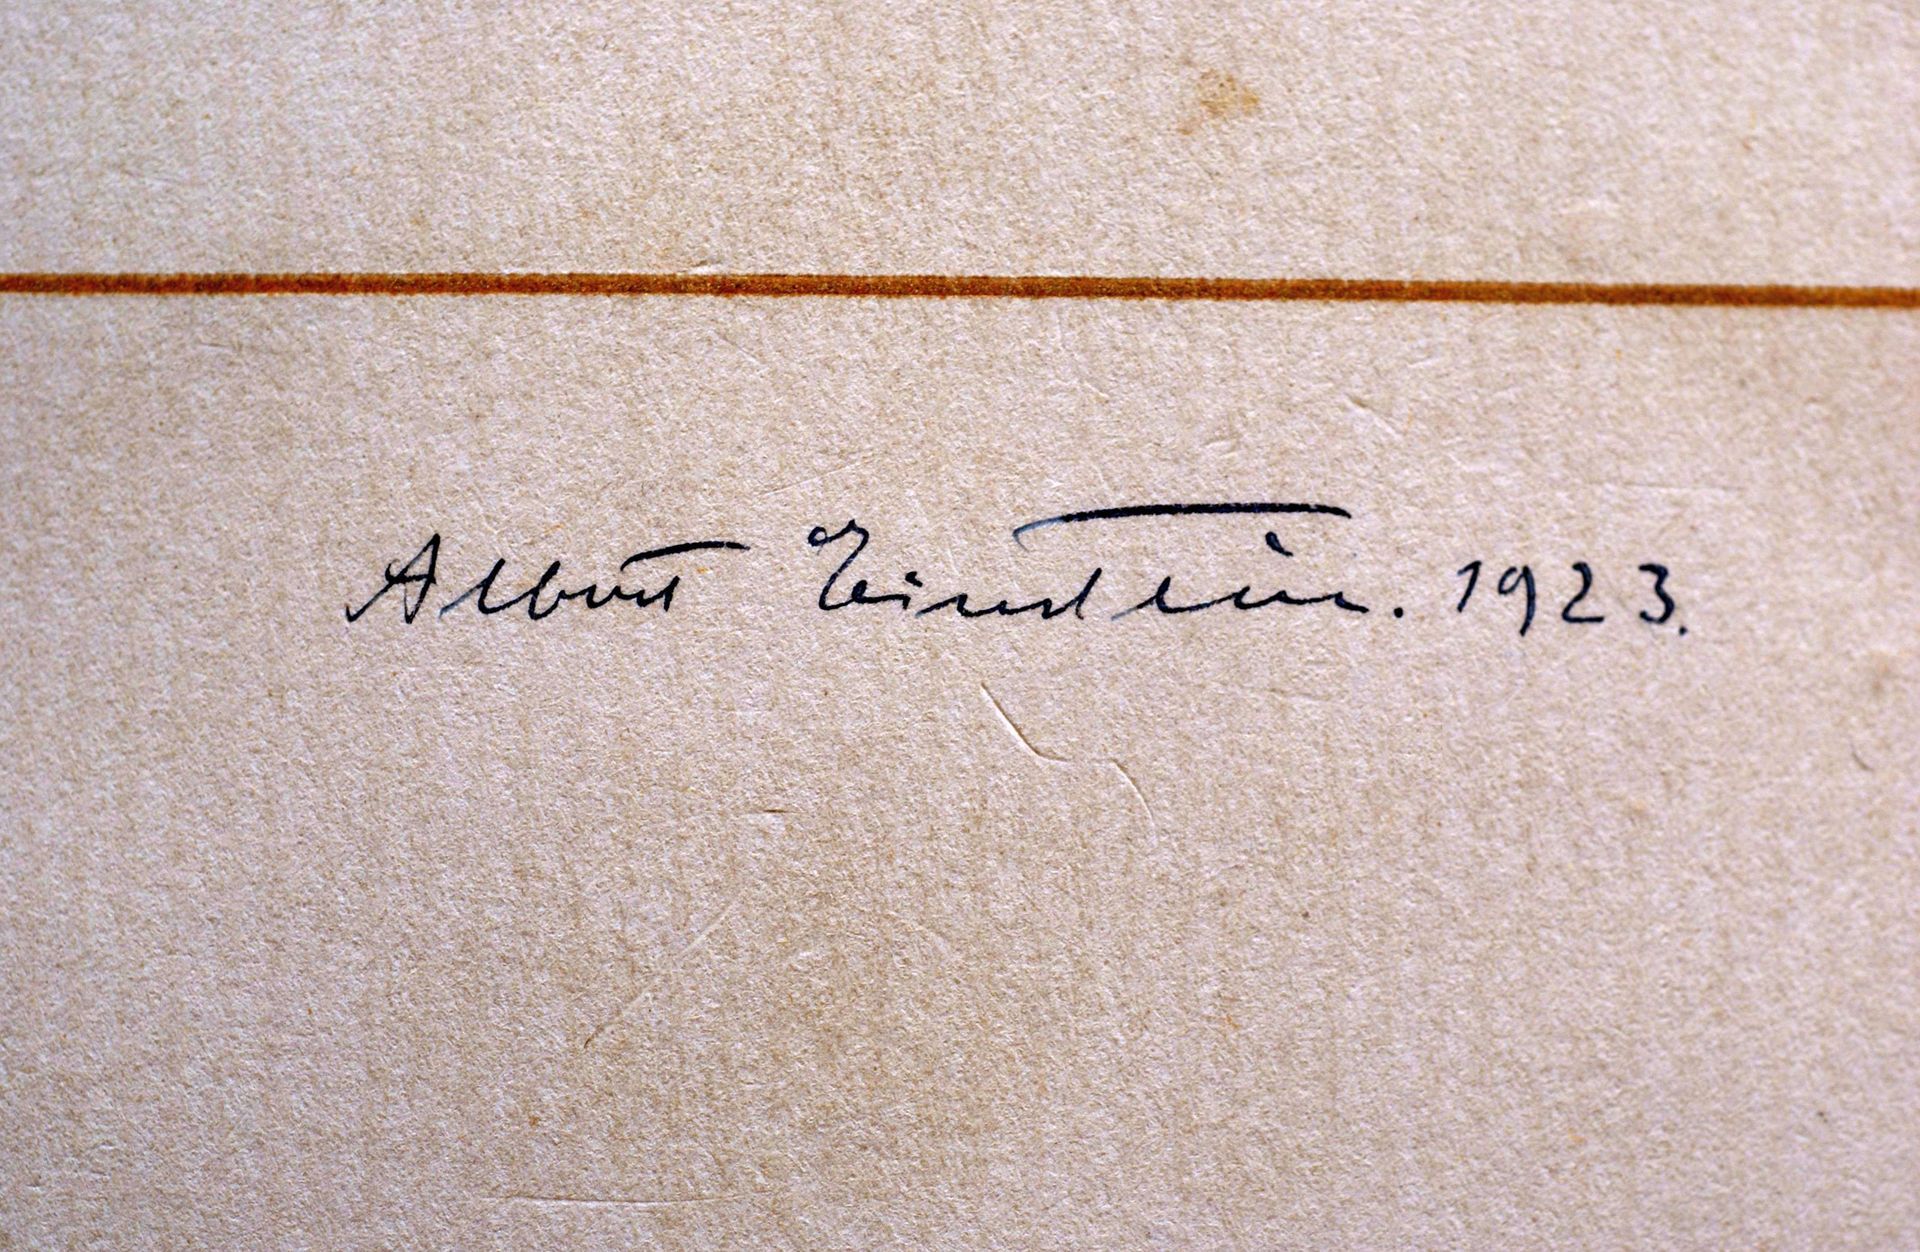 Albert Einstein. 1923.